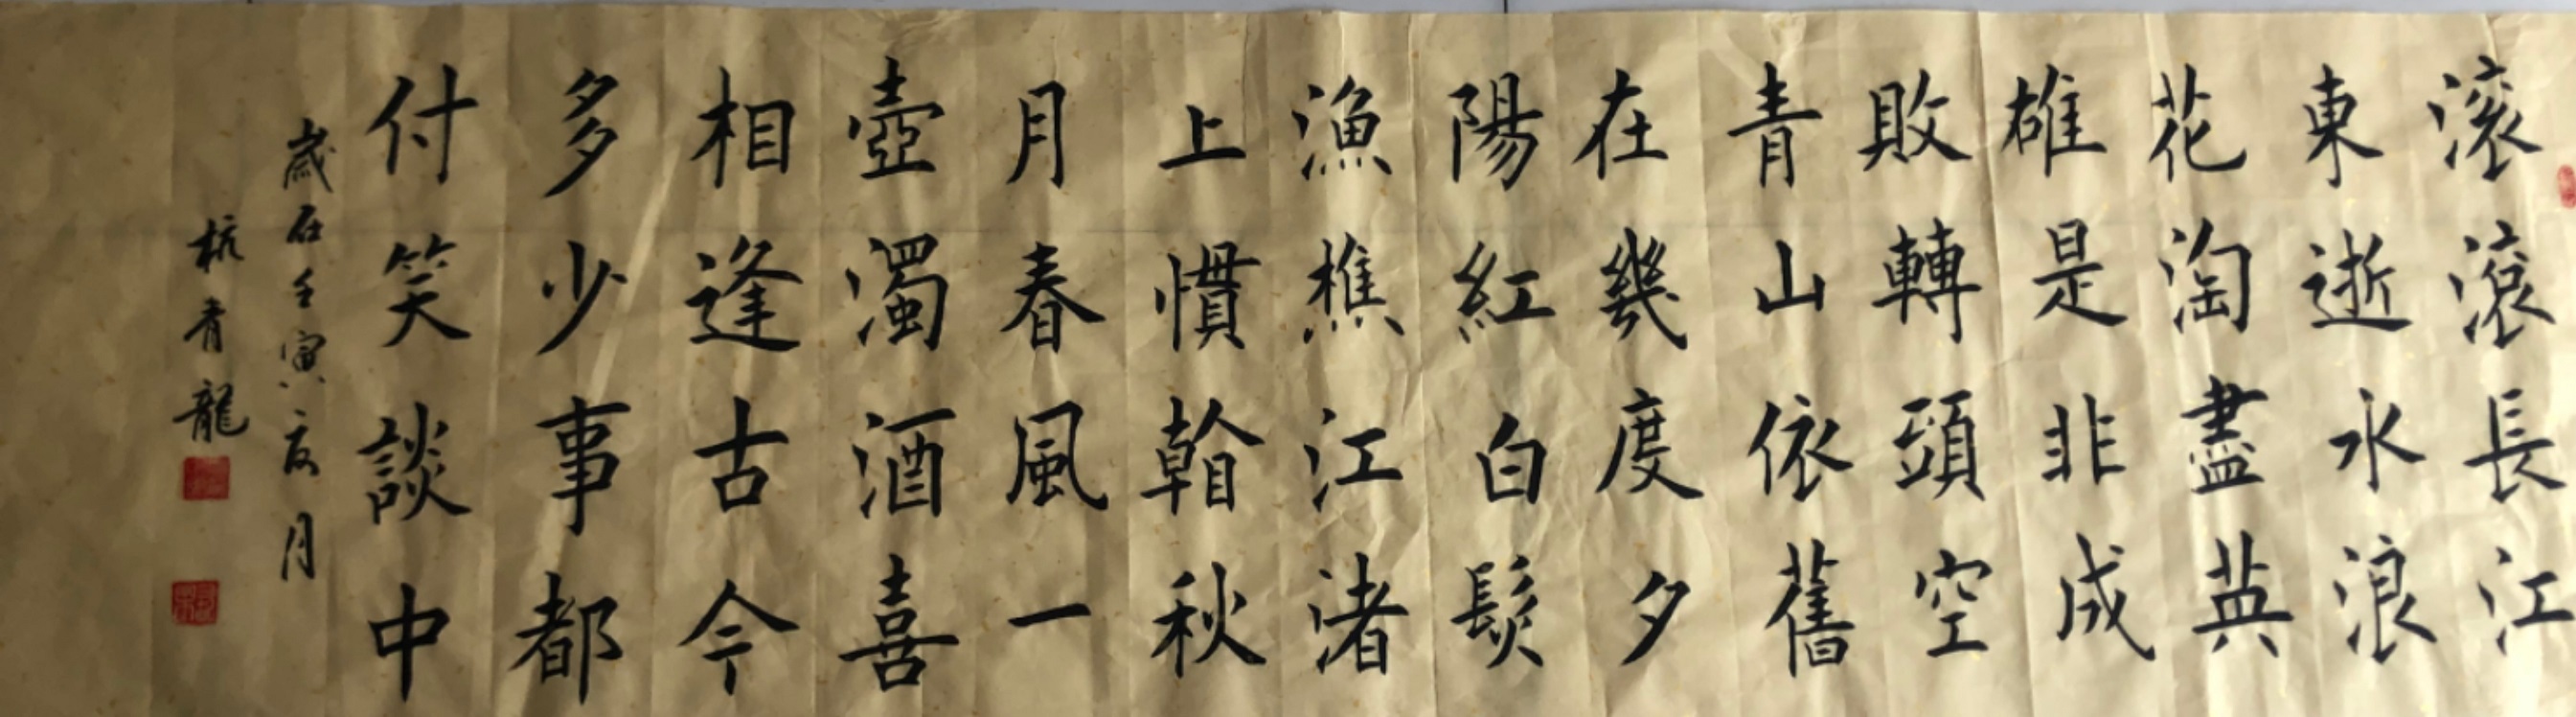 滚滚長江
東逝水浪
花淘盡英
雄是非成
敗轉頭空
青山依舊
在幾度夕
陽紅白髮
漁樵江渚
上慣看秋
月春風一
壺濁酒喜
相逢古今
多少事都
付笑談中
歲在壬寅夏月
杭青龍